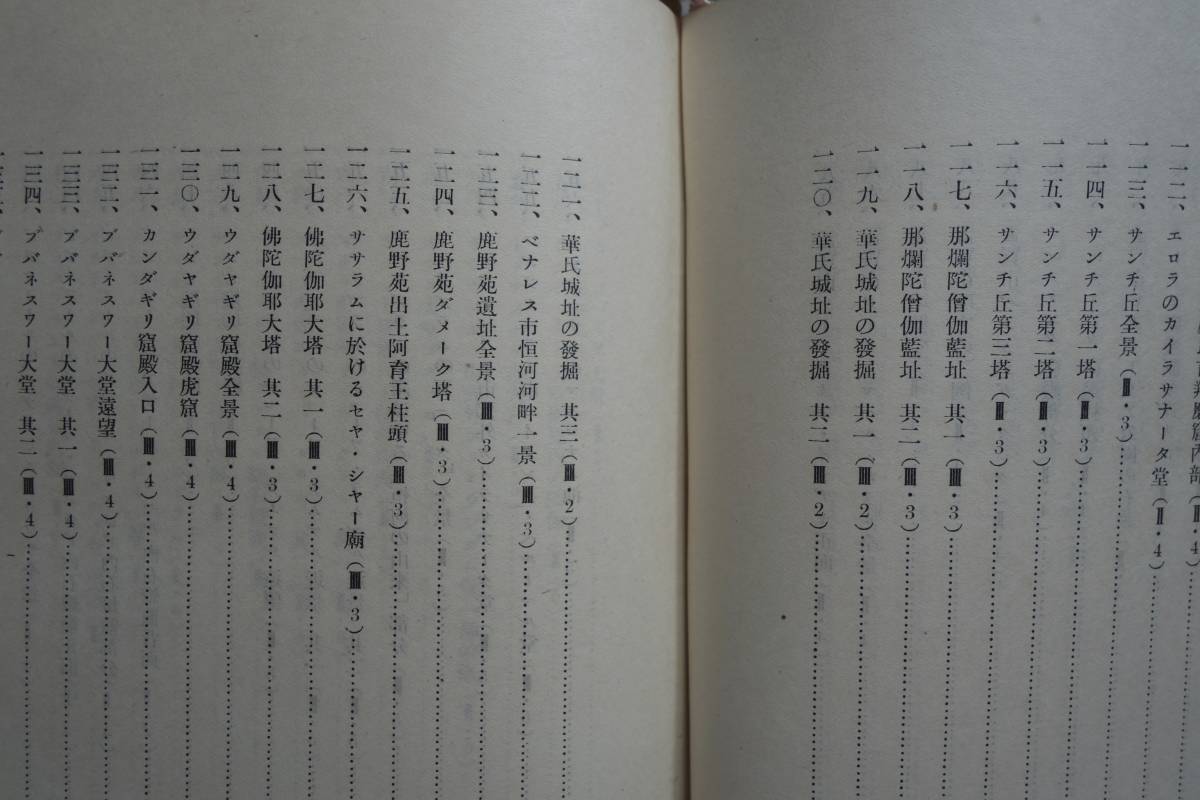 內部(Ⅱ・4)
一一二、エロラのカイラサナータ堂(Ⅱ・4)
一一三、サンチ丘全景(Ⅲ・3)
一一四、サンチ丘第一塔(Ⅲ・3)
一一五、サンチ丘第二塔(Ⅲ・3)
一一六、サンチ丘第三塔(Ⅲ・3)
一一七、那爛陀僧伽藍址 其一(Ⅲ・3)
一一八、那爛陀僧伽藍址 其二(Ⅲ・3)
一一九、華氏城址の發掘 其一(Ⅲ・2)
一二〇、華氏城址の發掘 其二(Ⅲ・2)
一二一、華氏城址の發掘 其三(Ⅲ・2)
一二二、ベナレス市恒河河畔一景(Ⅲ・3)
一二三、鹿野苑遺址全景(Ⅲ・3)
一二四、鹿野苑ダメーク塔(Ⅲ・3)
一二五、鹿野苑出土阿育王柱頭(Ⅲ・3)
一二六、ササラムに於けるセヤ・シャー廟(Ⅲ・3)
一二七、佛陀伽耶大塔 其一(Ⅲ・3)
一二八、佛陀伽耶大塔 其二(Ⅲ・3)
一二九、ウダヤギリ窟殿全景(Ⅲ・4)
一三〇、ウダヤギリ窟殿虎窟(Ⅲ・4)
一三一、カンダギリ窟殿入口(Ⅲ・4)
一三二、ブバネスワー大堂遠望(Ⅲ・4)
一三三、ブバネスワー大堂 其一(Ⅲ・4)
一三四、ブバネスワー大堂 其二(Ⅲ・4)